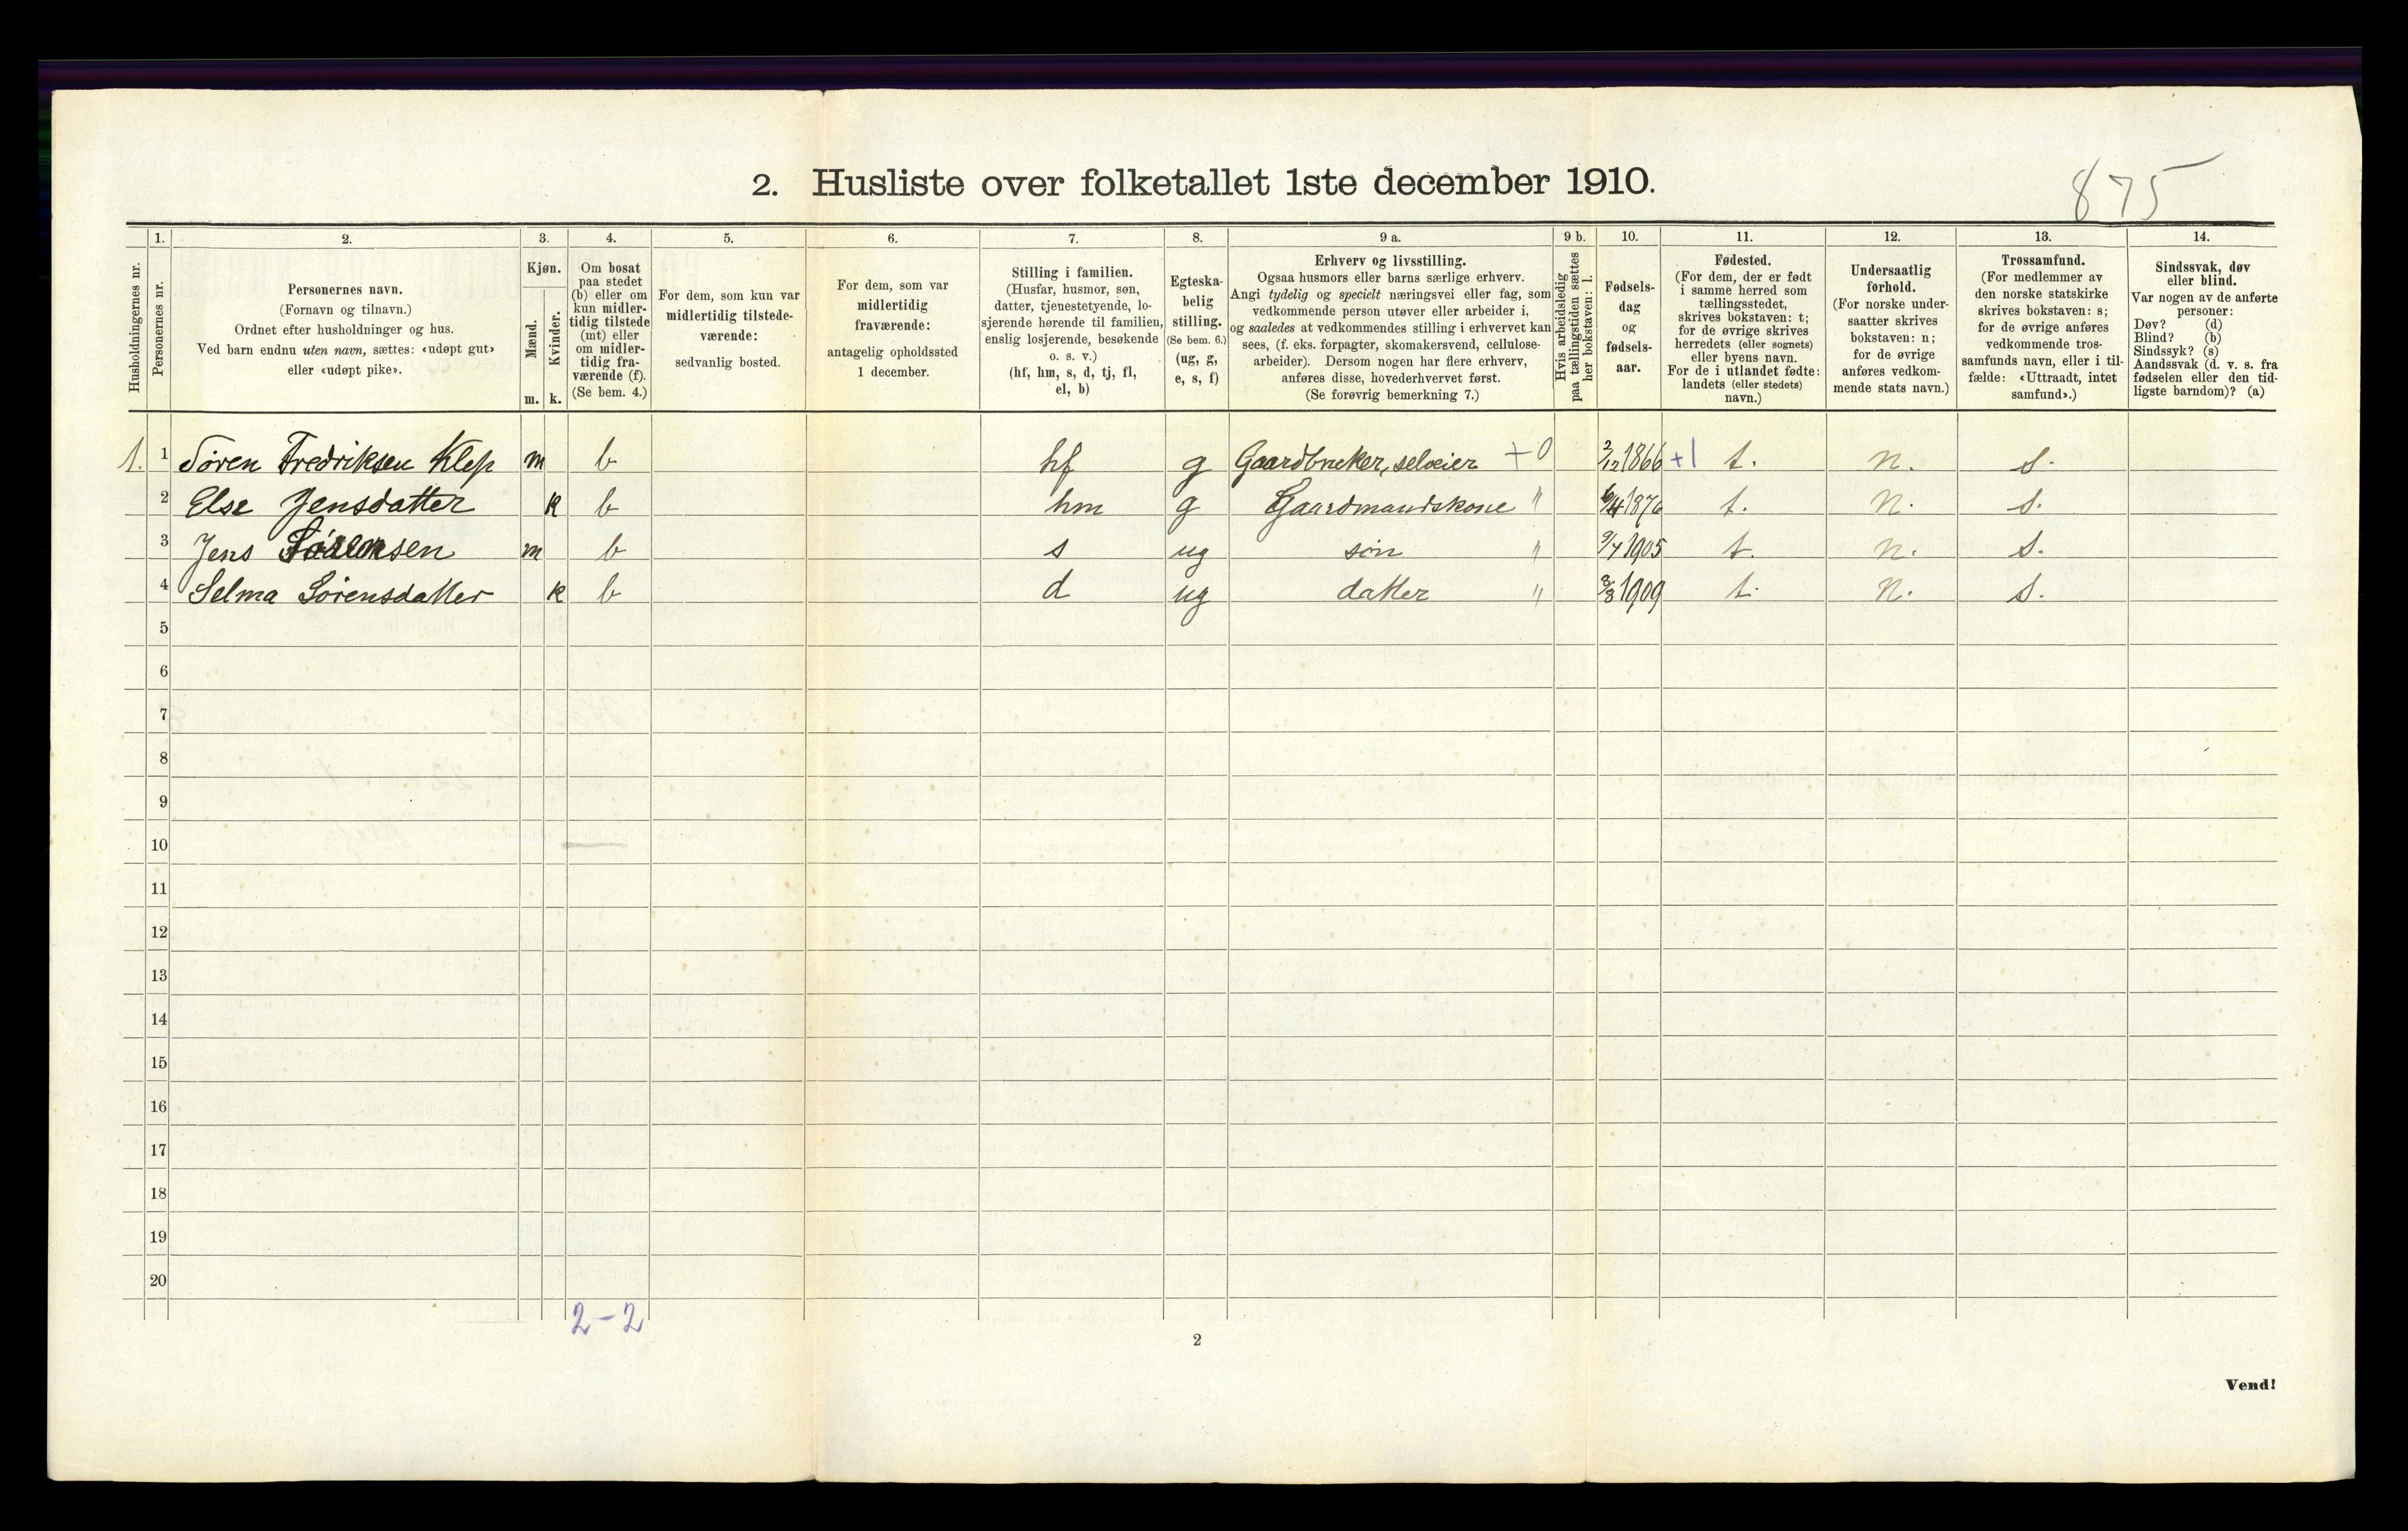 875
2. Husliste over folketallet 1ste december 1910.
Husholdningernes nr.
1.
Personernes nr.
2.
Personernes navn.
(Fornavn og tilnavn.)
Ordnet efter husholdninger og hus.
Ved barn endnu uten navn, sættes: «udøpt gut»
eller «udøpt pike».
3.
Kjøn.
Mænd.
Kvinder.
m. k.
4.
Om bosat
paa stedet
(b) eller om
kun midler-
tidig tilstede
(mt) eller
om midler-
tidig fra-
værende (f).
(Se bem. 4.)
5.
For dem, som kun var
midlertidig tilstede-
værende:
sedvanlig bosted.
6.
For dem, som var
midlertidig
fraværende:
antagelig opholdssted
1 december.
7.
Stilling i familien.
(Husfar, husmor, søn,
datter, tjenestetyende, lo-
sjerende hørende til familien,
enslig losjerende, besøkende
o. s. v.)
(hf, hm, s, d, tj, fl,
el, b)
8.
Egteska-
belig
stilling.
(Se bem. 6.)
(ug, g,
e, s, f)
9 a.
Erhverv og livsstilling.
Ogsaa husmors eller barns særlige erhverv.
Angi tydelig og specielt næringsvei eller fag, som
vedkommende person utøver eller arbeider i,
og saaledes at vedkommendes stilling i erhvervet kan
sees, (f. eks. forpagter, skomakersvend, cellulose-
arbeider). Dersom nogen har flere erhverv,
anføres disse, hovederhvervet først.
(Se forøvrig bemerkning 7.)
9 b.
Hvis arbeidsledig
paa tællingstiden sættes
her bokstaven: l.
10.
Fødsels-
dag
og
fødsels-
aar.
11.
Fødested.
(For dem, der er født
i samme herred som
tællingsstedet,
skrives bokstaven: t;
for de øvrige skrives
herredets (eller sognets)
eller byens navn.
For de i utlandet fødte:
landets (eller stedets)
navn.)
12.
Undersaatlig
forhold.
(For norske under-
saatter skrives
bokstaven: n;
for de øvrige
anføres vedkom-
mende stats navn.)
13.
Trossamfund.
(For medlemmer av
den norske statskirke
skrives bokstaven: s;
for de øvrige anføres
vedkommende tros-
samfunds navn, eller i til-
fælde: «Uttraadt, intet
samfund».)
14.
Sindssvak, døv
eller blind.
Var nogen av de anførte
personer:
Døv? (d)
Blind? (b)
Sindssyk? (s)
Aandssvak (d. v. s. fra
fødselen eller den tid-
ligste barndom)? (a)
1. 1 Søren Fredriksen Klep m b hf g Gaardbruker, selveier +0 2/12 1866 +1 t. n. s.
2 Else Jensdatter k b hm g Gaardmandskone " 1876 t. n. s.
3 Jens Sørensen m b s ug søn " 1905 t. n. s.
4 Selma Sørensdatter k b d ug datter " 1909 t. n. s.
5
6
7
8
9
10
11
12
13
14
15
16
17
18
19
20
2-2
2
Vend!